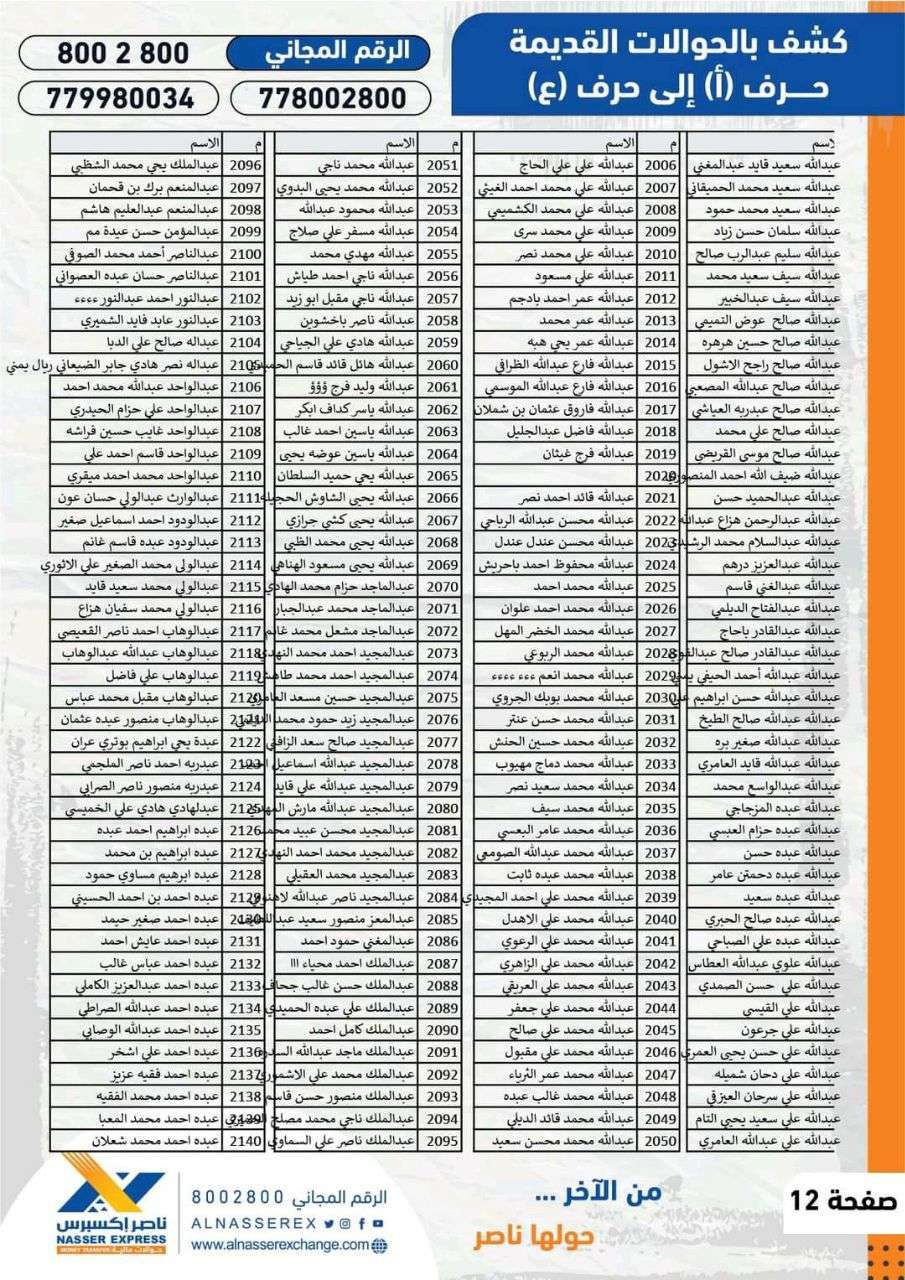 كشف بالحوالات القديمة
حرف (أ) إلى حرف (ع)
الرقم المجاني 800 2 800
778002800 779980034
الاسم
عبدالله سعيد قايد عبدالمغني
عبدالله سعيد محمد الحميقاني
عبدالله سعيد محمد حمود
عبدالله سلمان حسن زياد
عبدالله سليم عبدالرب صالح
عبدالله سيف سعيد محمد
عبدالله سيف عبدالخبير
عبدالله صالح عوض التميمي
عبدالله صالح حسين هرهره
عبدالله صالح راجح الاشول
عبدالله صالح عبدالله المصعبي
عبدالله صالح عبدربه العياشي
عبدالله صالح علي محمد
عبدالله صالح موسى القريضي
عبدالله ضيف الله احمد المنصوري
عبدالله عبدالحميد حسن
عبدالله عبدالرحمن هزاع عبدالله
عبدالله عبدالسلام محمد الرشيدي
عبدالله عبدالعزيز درهم
عبدالله عبدالغني قاسم
عبدالله عبدالفتاح الديلمي
عبدالله عبدالقادر باحاج
عبدالله عبدالقادر صالح عبدالقوي
عبدالله عبدالله أحمد الحيفي يمني
عبدالله عبدالله حسن ابراهيم علي
عبدالله عبدالله صالح الطيخ
عبدالله عبدالله صغير بره
عبدالله عبدالله قايد العامري
عبدالله عبدالواسع محمد
عبدالله عبده المزجاجي
عبدالله عبده حزام العبسي
عبدالله عبده حسن
عبدالله عبده دحمتن عامر
عبدالله عبده سعيد
عبدالله عبده صالح الحبري
عبدالله عبده علي الصباحي
عبدالله علوي عبدالله العطاس
عبدالله علي حسن الصمدي
عبدالله علي القيسي
عبدالله علي جرعون
عبدالله علي حسن يحيى العمري
عبدالله علي دحان شميله
عبدالله علي سرحان العيزقي
عبدالله علي سعيد يحيى التام
عبدالله علي عبدالله العامري
م الاسم
2006 عبدالله علي علي الحاج
2007 عبدالله علي محمد احمد الغيثي
2008 عبدالله علي محمد الكشميمي
2009 عبدالله علي محمد سرى
2010 عبدالله علي محمد نصر
2011 عبدالله علي مسعود
2012 عبدالله عمر احمد يادجم
2013 عبدالله عمر محمد
2014 عبدالله عمر يحي هبه
2015 عبدالله فارع عبدالله الظرافي
2016 عبدالله فارع عبدالله الموسمي
2017 عبدالله فاروق عثمان بن شملان
2018 عبدالله فاضل عبدالجليل
2019 عبدالله فرج غيثان
2020
2021 عبدالله قائد احمد نصر
2022 عبدالله محسن عبدالله الرباحي
2023 عبدالله محسن عندل عندل
2024 عبدالله محفوظ احمد باحريش
2025 عبدالله محمد احمد
2026 عبدالله محمد احمد علوان
2027 عبدالله محمد الخضر المهل
2028 عبدالله محمد الربوعي
2029 عبدالله محمد انعم ءءء ءءءء
2030 عبدالله محمد بوبك الجروي
2031 عبدالله محمد حسن عنتر
2032 عبدالله محمد حسين الحنش
2033 عبدالله محمد دماج مهيوب
2034 عبدالله محمد سعيد نصر
2035 عبدالله محمد سيف
2036 عبدالله محمد عامر اليعسي
2037 عبدالله محمد عبدالله الصومعي
2038 عبدالله محمد عبده ثابت
2039 عبدالله محمد علي احمد المجيدي
2040 عبدالله محمد علي الاهدل
2041 عبدالله محمد علي الرعوي
2042 عبدالله محمد علي الزاهري
2043 عبدالله محمد علي العريقي
2044 عبدالله محمد علي جعفر
2045 عبدالله محمد علي صالح
2046 عبدالله محمد علي مقبول
2047 عبدالله محمد عمر الثرياء
2048 عبدالله محمد غالب عبده
2049 عبدالله محمد قائد الديلي
2050 عبدالله محمد محسن سعيد
م الاسم
2051 عبدالله محمد ناجي
2052 عبدالله محمد يحيى البدوي
2053 عبدالله محمود عبدالله
2054 عبدالله مسفر علي صلاح
2055 عبدالله مهدي محمد
2056 عبدالله ناجي احمد طياش
2057 عبدالله ناجي مقبل ابو زيد
2058 عبدالله ناصر باخشوين
2059 عبدالله هادي علي الجياحي
2060 عبدالله هائل قائد قاسم الحميدي
2061 عبدالله وليد فرج ؤؤؤ
2062 عبدالله ياسر كداف ابكر
2063 عبدالله ياسين احمد غالب
2064 عبدالله ياسين عوضه يحيى
2065 عبدالله يحي حميد السلطان
2066 عبدالله يحيى الشاوش الحجيله
2067 عبدالله يحيى كشي جرازي
2068 عبدالله يحيى محمد الظبي
2069 عبدالله يحيى مسعود الهناهي
2070 عبدالماجد حزام محمد الهادي
2071 عبدالماجد محمد عبدالجبار
2072 عبدالماجد مشعل محمد غالم
2073 عبدالمجيد احمد محمد النهدي
2074 عبدالمجيد احمد محمد طاهش
2075 عبدالمجيد حسين مسعد العامري
2076 عبدالمجيد زيد حمود محمد
2077 عبدالمجيد صالح سعد الزافني
2078 عبدالمجيد عبدالله اسماعيل احمد
2079 عبدالمجيد عبدالله علي قايد
2080 عبدالمجيد عبدالله مارش المهدي
2081 عبدالمجيد محسن عبيد محمد
2082 عبدالمجيد محمد احمد النهدي
2083 عبدالمجيد محمد العقيلي
2084 عبدالمجيد ناصر عبدالله
2085 عبدالمعز منصور سعيد
2086 عبدالمغني حمود احمد
2087 عبدالملك احمد محياء ااا
2088 عبدالملك حسن غالب جحاف
2089 عبدالملك علي عبده الحميدي
2090 عبدالملك كامل احمد
2091 عبدالملك ماجد عبدالله السدره
2092 عبدالملك محمد علي الاشموري
2093 عبدالملك منصور حسن قاسم
2094 عبدالملك ناجي محمد مصلح
2095 عبدالملك ناصر علي السماوي
م الاسم
2096 عبدالملك يحي محمد الشظبي
2097 عبدالمنعم برك بن قحمان
2098 عبدالمنعم عبدالعليم هاشم
2099 عبدالمؤمن حسن عيدة مم
2100 عبدالناصر أحمد محمد الصوفي
2101 عبدالناصر حسان عبده العصواني
2102 عبدالنور احمد عبدالنور ءءءء
2103 عبدالنور عابد فايد الشميري
2104 عبداله صالح علي الدبا
2105 عبداله نصر هادي جابر الضيعاني ريال يمني
2106 عبدالواحد عبدالله محمد احمد
2107 عبدالواحد علي حزام الحيدري
2108 عبدالواحد غايب حسين فراشه
2109 عبدالواحد قاسم احمد علي
2110 عبدالواحد محمد احمد ميقري
2111 عبدالوارث عبدالولي حسان عون
2112 عبدالودود احمد اسماعيل صغير
2113 عبدالودود عبده قاسم غانم
2114 عبدالولى محمد الصغير علي الاثوري
2115 عبدالولي محمد سعيد قايد
2116 عبدالولي محمد سفيان هزاع
2117 عبدالوهاب احمد ناصر القعيصي
2118 عبدالوهاب عبدالله عبدالوهاب
2119 عبدالوهاب علي فاضل
2120 عبدالوهاب مقبل محمد عباس
2121 عبدالوهاب منصور عبده عثمان
2122 عبدة يحي ابراهيم بوتري عران
2123 عبدربه احمد ناصر الملجمي
2124 عبدربه منصور ناصر الصرابي
2125 عبدلهادي هادي علي الخميسي
2126 عبده ابراهيم احمد عبده
2127 عبده ابراهيم بن محمد
2128 عبده ابرهيم مساوي حمود
2129 عبده احمد بن احمد الحسيني
2130 عبده احمد صغير حيمد
2131 عبده احمد عايش احمد
2132 عبده احمد عباس غالب
2133 عبده احمد عبدالعزيز الكاملي
2134 عبده احمد عبدالله الصراطي
2135 عبده احمد عبدالله الوصابي
2136 عبده احمد علي اشخر
2137 عبده احمد فقيه عزيز
2138 عبده احمد محمد الفقيه
2139 عبده احمد محمد المعبا
2140 عبده احمد محمد شعلان
صفحة 12
من الآخر ...
حولها ناصر
الرقم المجاني 8002800
ALNASSEREX
www.alnasserexchange.com
ناصر إكسبرس
NASSER EXPRESS
MONEY TRANSFER حوالات مالية